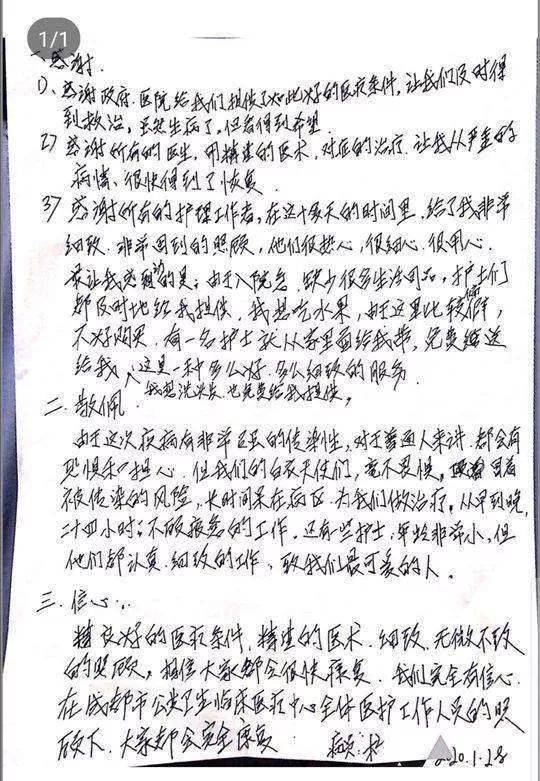 1/1
一、感谢.
1)、感谢政府.医院给我们提供了如此好的医疗条件,让我们及时得
到救治,虽然生病了,但看得到希望.
2) 感谢所有的医生,用精湛的医术,对症的治疗.让我从严重的
病情、很快得到了恢复.
3) 感谢所有的护理工作者,在这十多天的时间里,给了我非常
细致.非常周到的照顾,他们很热心,很细心.很用心.
最让我感动的是:由于入院急,缺少很多生活用品,护士们
都及时地给我提供.我想吃水果,由于这里比较偏僻,
不好购买.有一名护士就从家里面给我带,免费赠送
给我,这是一种多么好.多么细致的服务.
我想洗头.也免费给我提供。
二.敬佩.
由于这次疫病有非常强的传染性,对于普通人来讲.都会有
恐惧和担心.但我们的白衣天使们,毫不畏惧,冒着
被传染的风险,长时间呆在病区.为我们做治疗,从早到晚,
二十四小时,不顾疲惫的工作,还有些护士,年龄非常小,但
他们都认真.细致的工作、致我们最可爱的人。
三.信心..
精良好的医疗条件.精湛的医术.细致.无微不致
的照顾。相信大家都会很快康复.我们完全有信心.
在成都市公共卫生临床医疗中心全体医护工作人员的照
顾下.大家都会完全康复.
2020.1.28